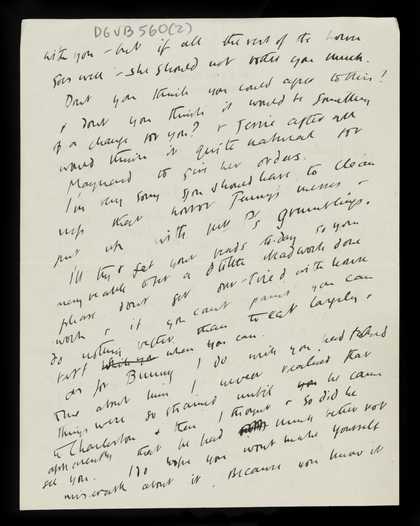 DGVB560(2)
with you - but if all the rest of the house
goes well - she should not bother you much.
Don't you think you could agree to this!
& don't you think it would be something
of a change for you? & Jessie after all
would think it quite natural for
Maynard to give her orders.
I'm very sorry you should have to clean
up that horror Jenny's messes -
put up with grumblings.
I'll try & get your beads to-day so you
may be able over a little bead work done
please don't get over-tired with house
work & if you can't paint you can
do nothing better than to eat largely &
rest when you can.
As for Bunny I do wish you had talked
more about him I never realised that
things were so strained until he came
to Charleston & then I thought & so did he
apparently that he had much better not
see you. I do hope you won't make yourself
miserable about it. Because you know it